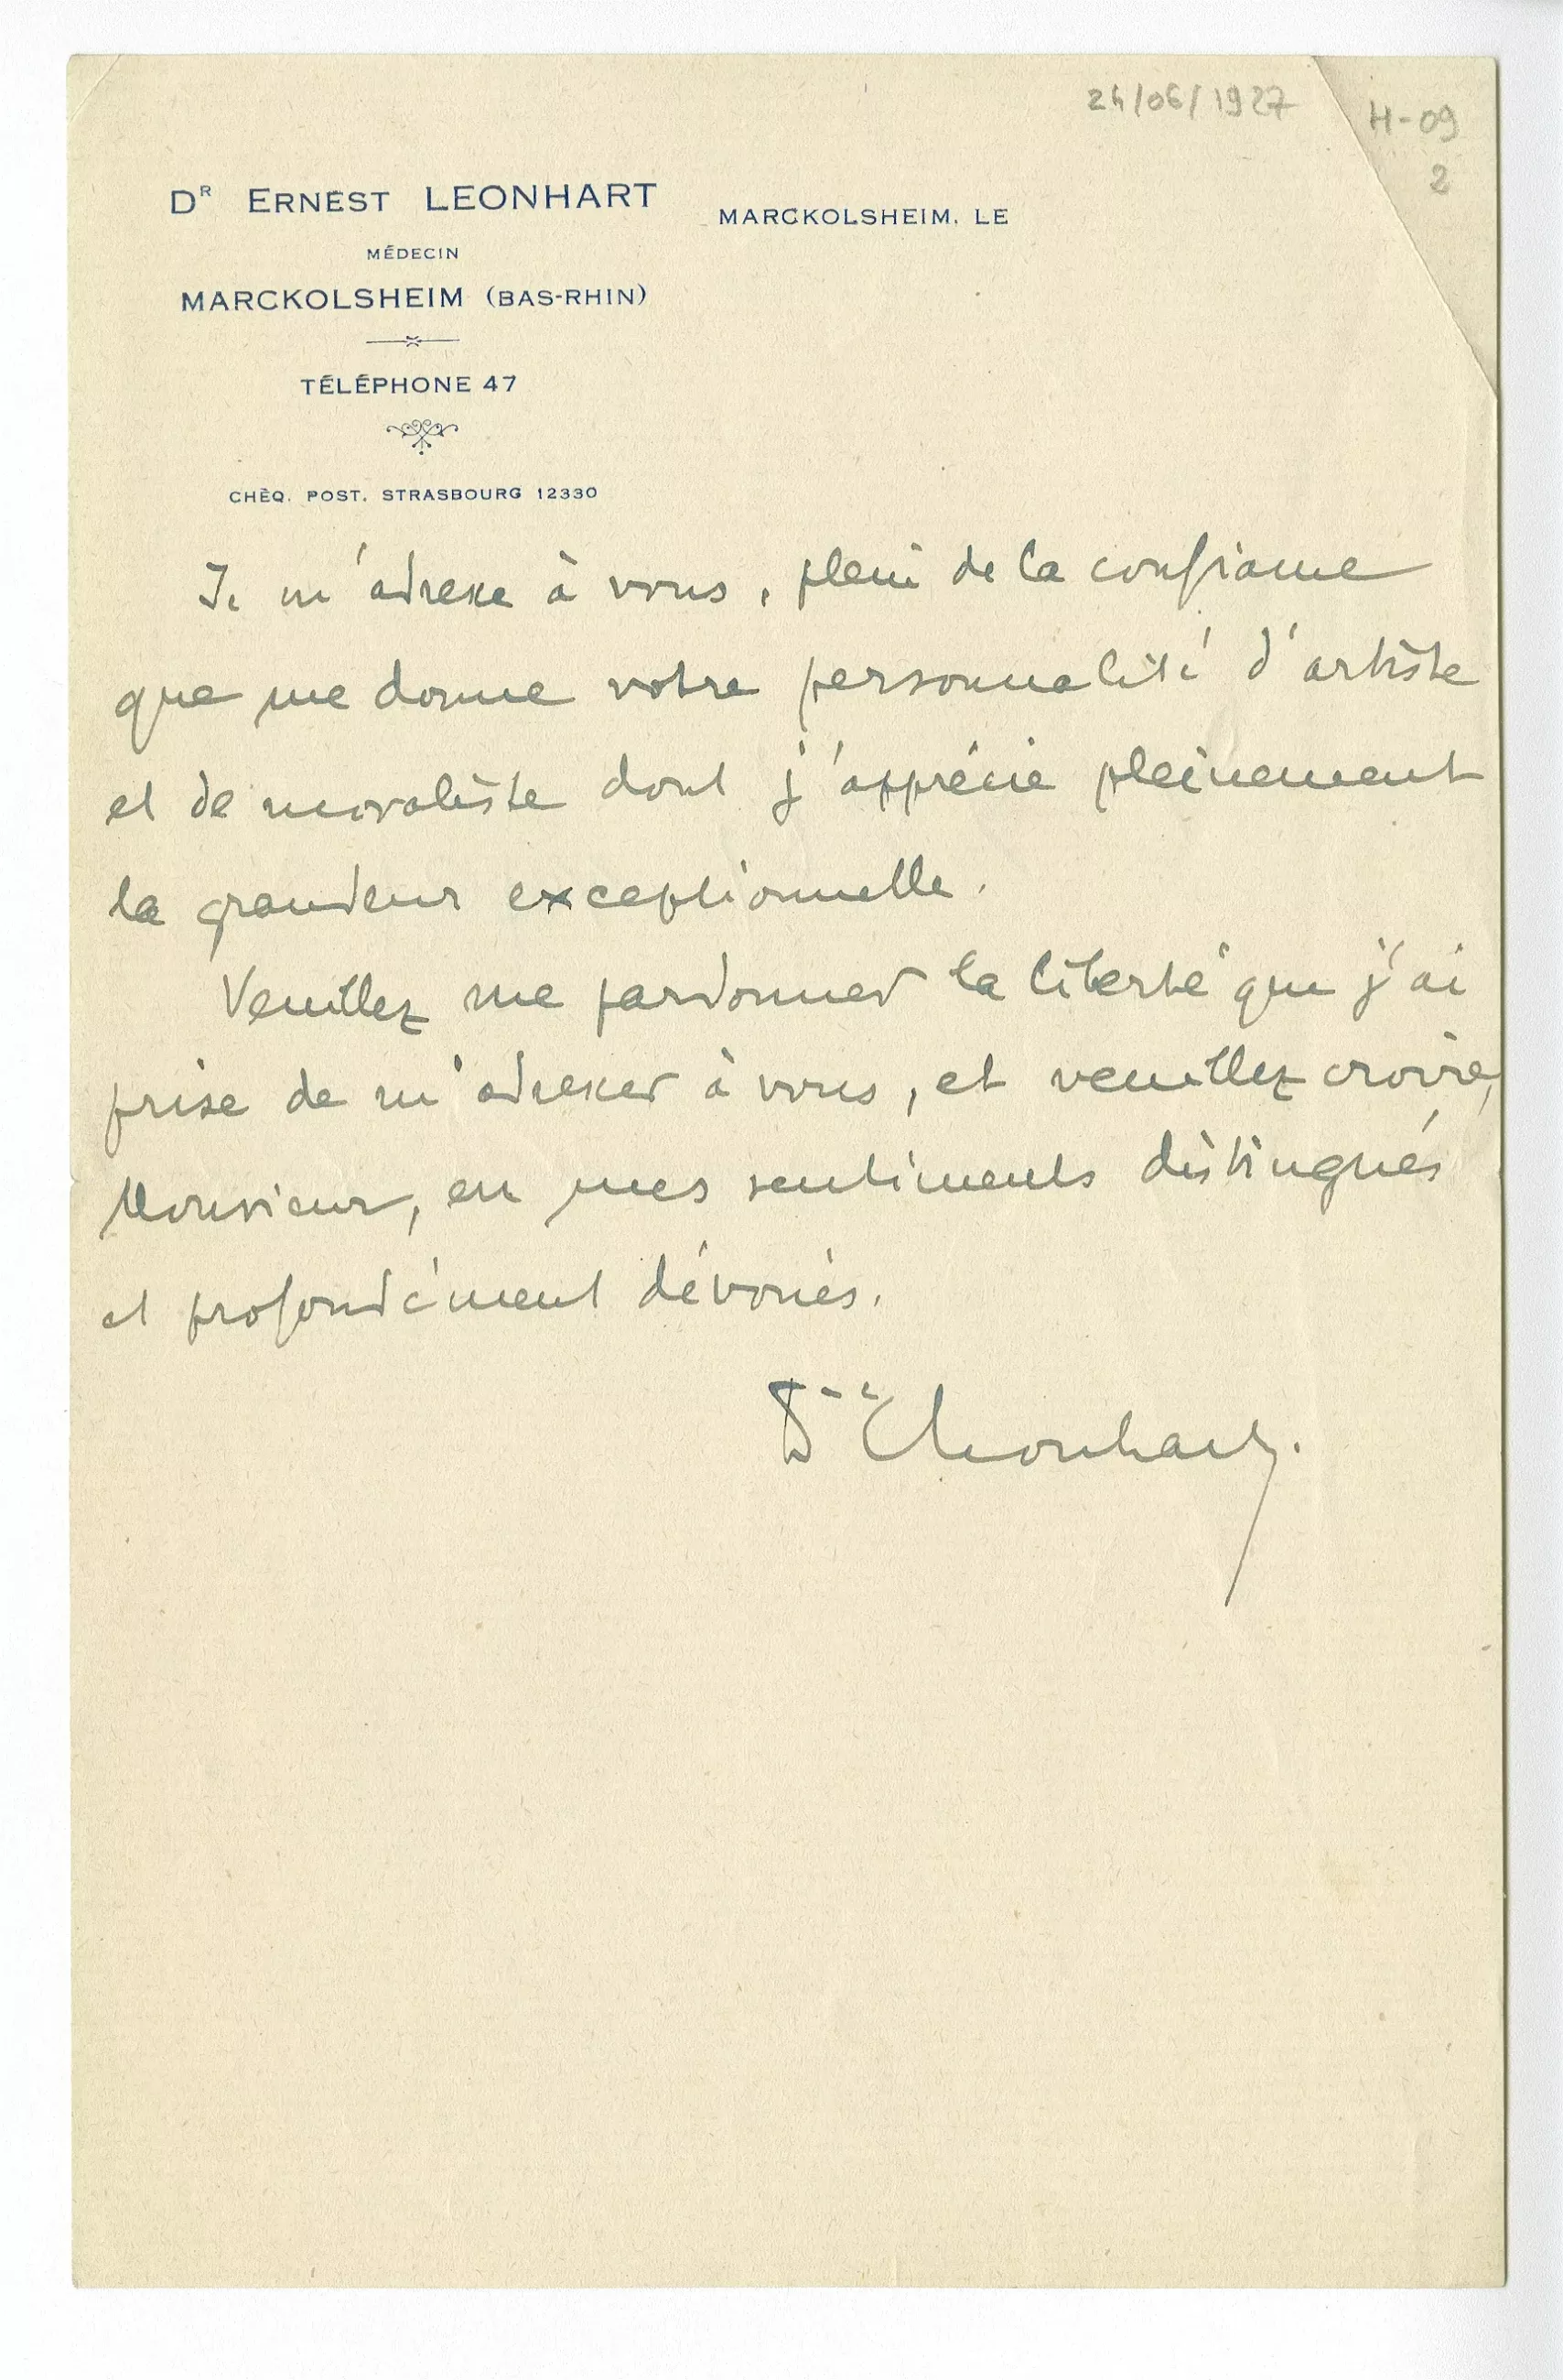 24/06/1927
H-09
2
DR ERNEST LEONHART
MÉDECIN
MARCKOLSHEIM (BAS-RHIN)
TÉLÉPHONE 47
CHÈQ. POST. STRASBOURG 12330
MARCKOLSHEIM, LE
Je m'adresse à vous, plein de la confiance
que me donne votre personnalité d'artiste
et de moraliste dont j'apprécie pleinement
la grandeur exceptionnelle.
Veuillez me pardonner la liberté que j'ai
prise de m'adresser à vous, et veuillez croire,
Monsieur, en mes sentiments distingués
et profondément dévoués.
Dr E Leonhart.